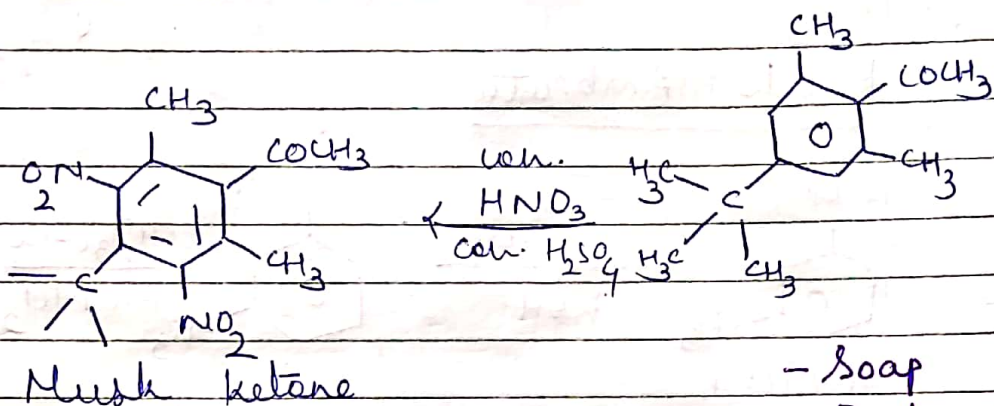 CH3
COCH3
CH3
COCH3
O2N
con.
HNO3
con. H2SO4
H3C
C
CH3
H3C
CH3
CH3
C
NO2
Musk ketone
- Soap